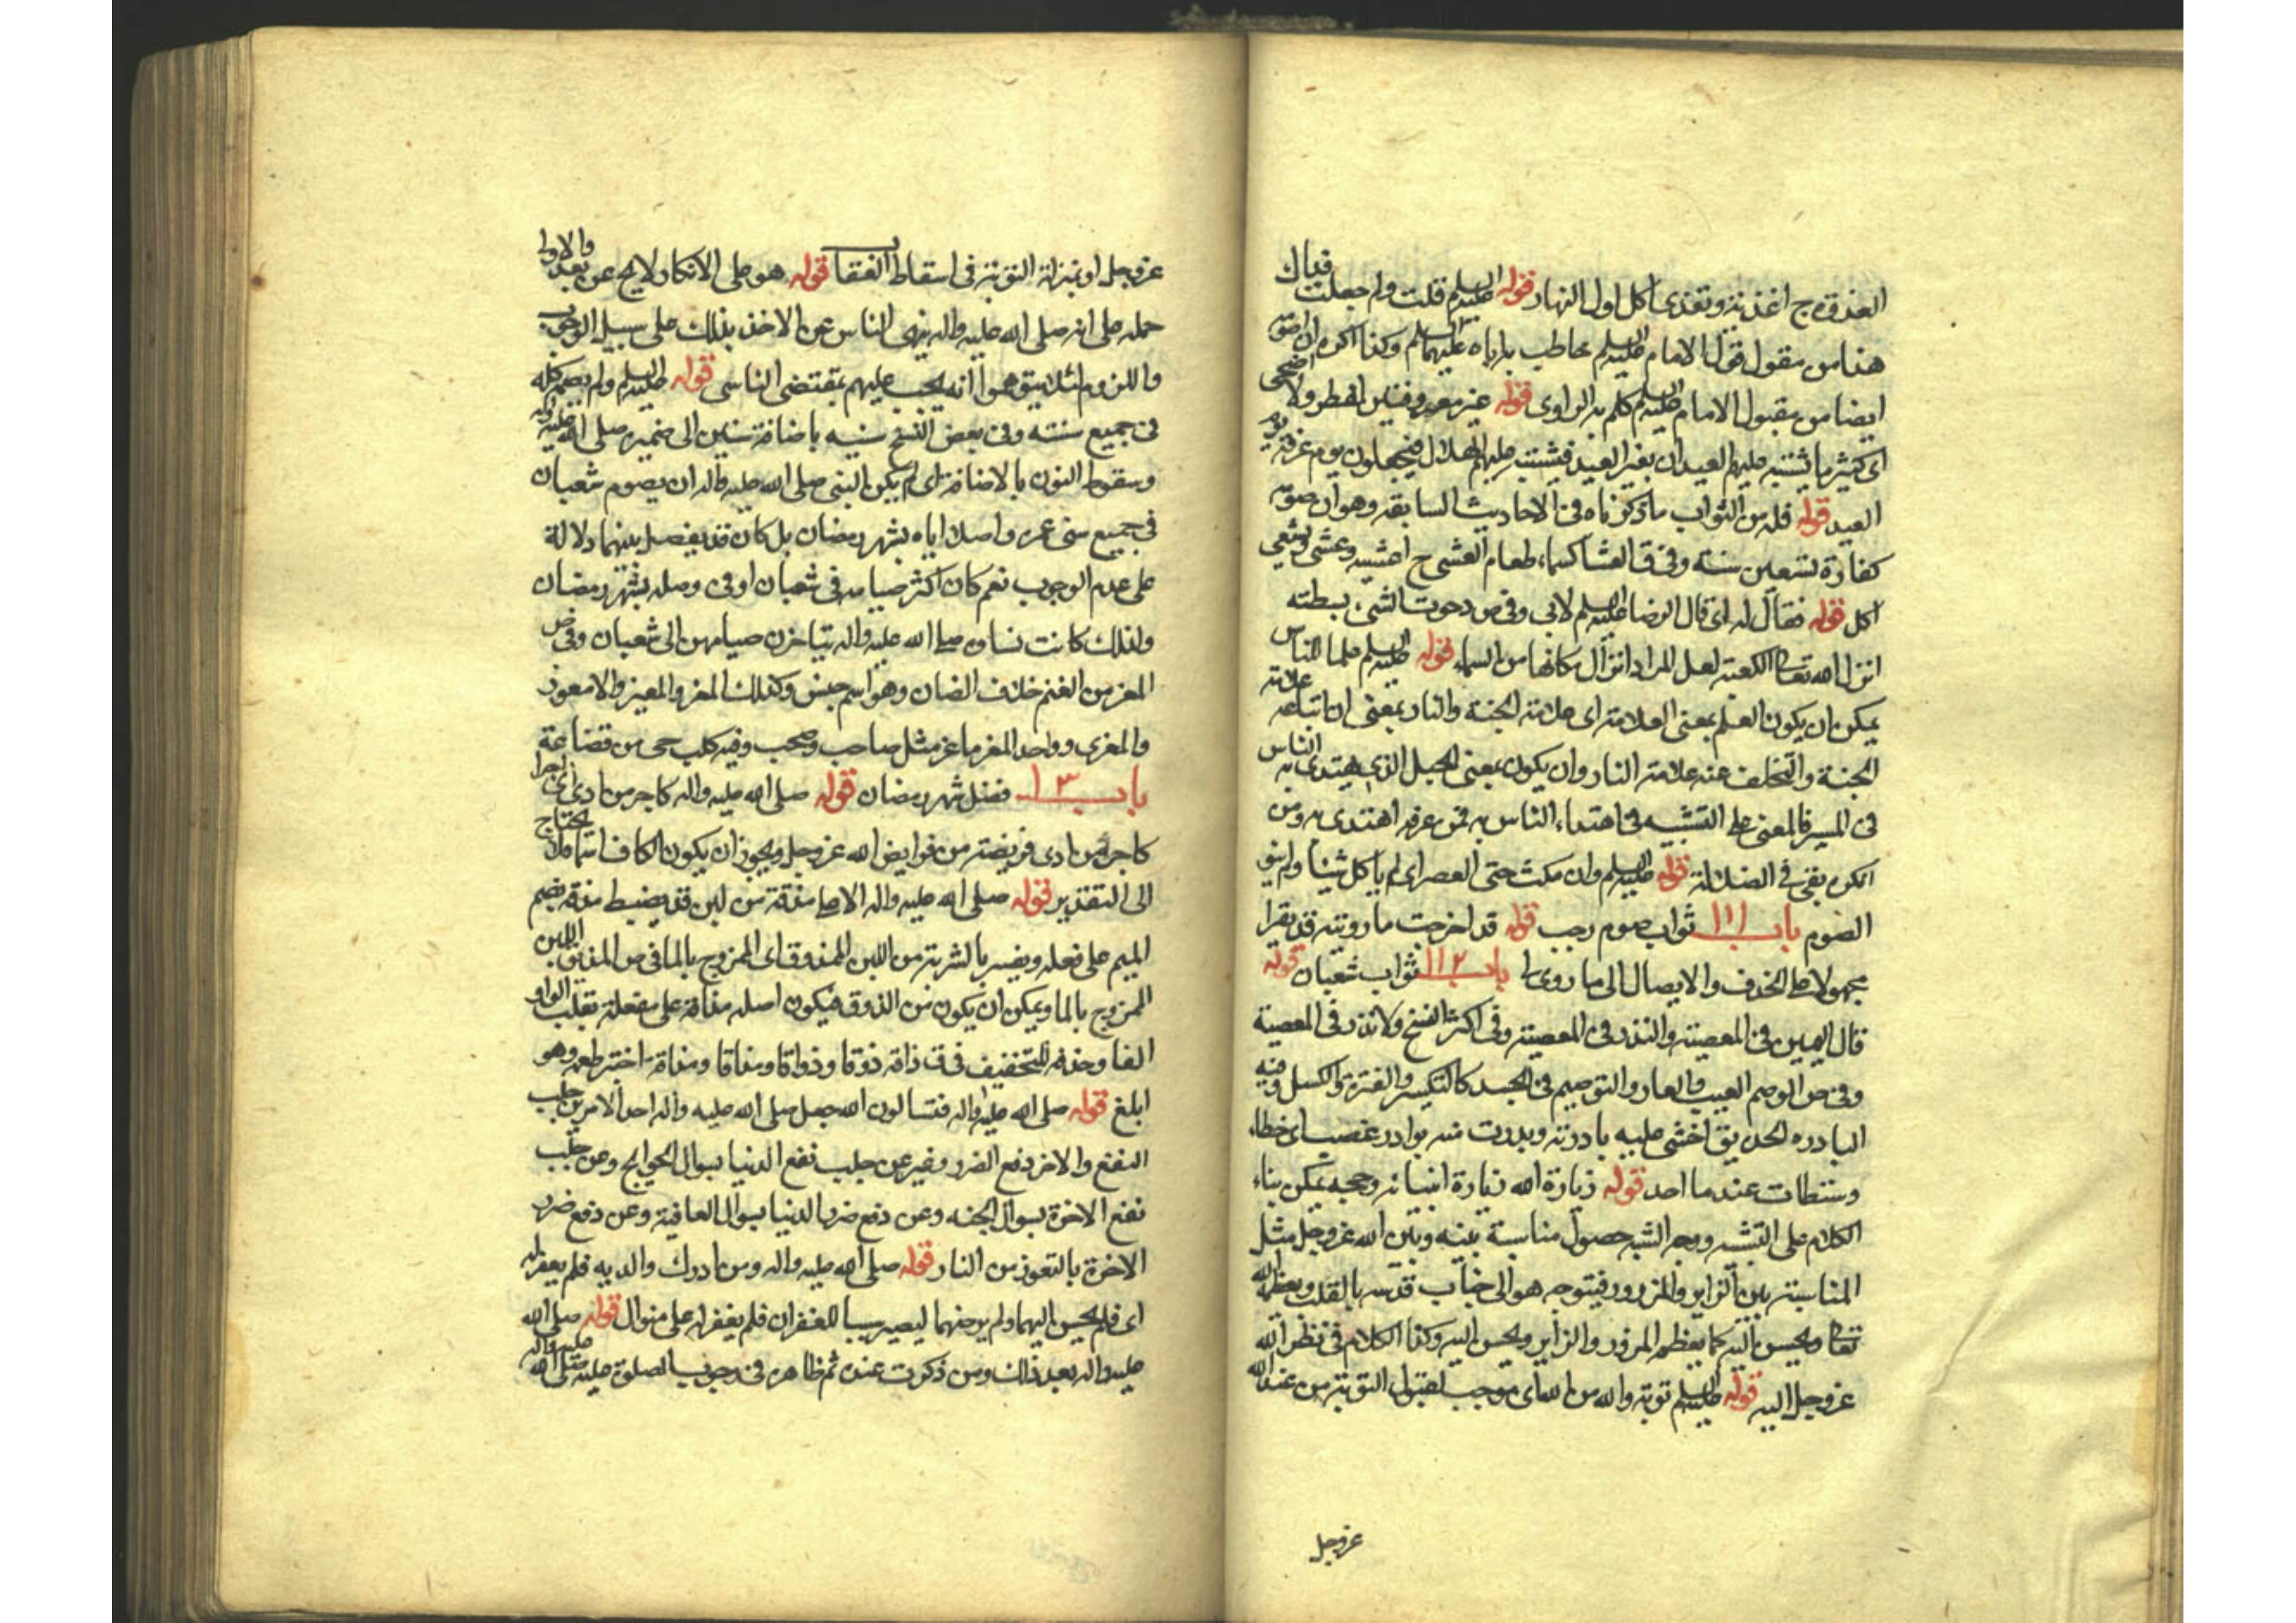 الغذوة ج اغذية وتغذى اكل اول النهار قوله عليه السلم قلت ولم جعلت فداك
هذا من مقول قول الامام عليه السلم مخاطب باباه عليهما السلم وكذا اكره ان اصومه
ايضا من مقول الامام عليه السلم كلم به الراوى قوله غير معروفتين الفطر ولا اضحى
اى كثير ما يشتبه عليهم العيدان بغير العيد فيشتبه عليهم الهلال فيجعلون يوم عرفة يوم
العيد قوله فله من الثواب ما ذكرناه فى الاحاديث السابقه وهو ان صومه
كفارة تسعين سنة وفى ق العشا كسماء طعام العشى ج اعشيه وعشى وتعشى
اكل قوله فقال له اى قال الرضا عليه السلم لابى وفى ص دحوت الشئ بسطته
انزل الله تعالى الكعبة لعل المراد انزال مكانها من السماء قوله عليه السلم علما للناس
يمكن ان يكون العلم بمعنى العلامة اى علامة الجنة والنار بمعنى ان اتباعه علامة
الجنة والتخلف عنه علامة النار وان يكون بمعنى الجبل الذى يهتدى به الناس
فى المسير فالمعنى على التشبيه فى اهتداء الناس به فمن عرفه اهتدى به ومن
انكره بقى فى الضلالة قوله عليه السلم وان مكث حتى العصر اى لم ياكل شيئا ولم ينو
الصوم باب ١١١ ثواب صوم رجب قوله قد اخرجت ما رويته قد يقرا
مجهولا على الحذف والايصال الى ما روى لى باب ١١٢ ثواب شعبان قوله
قال اليمين فى المعصية والنذر فى المعصية وفى اكثر النسخ ولا نذر فى المعصية
وفى ص الوصم العيب والعار والتوصيم فى الجسد كالتكسر والفترة والكسل وفيه
البادره الحدة يق اخشى عليه بادرته وبدرت منه بوادر غضب اى خطاء
وسقطات عندما احتد قوله زيارة الله زيارة انبيائه وحججه يمكن بناء
الكلام على التشبيه ووجه الشبه حصول مناسبة بينه وبين الله عزوجل مثل
المناسبة بين الزاير والمزور فيتوجه هو الى جناب قدسه بالقلب ويعظمه الله
تعالى ويحسن اليه كما يعظم المزور الزاير ويحسن اليه وكذا الكلام فى نظر الله
عزوجل اليه قوله عليه السلم توبة والله من الله اى موجب لقبول التوبة من عند الله
عزوجل
عزوجل او بمنزلة التوبة فى اسقاط العقاب قوله هو على الانكار لا يخ عن بعد والاولى
حمله على انه صلى الله عليه واله ينهى الناس عن الاخذ بذلك على سبيل الوجوب
واللزوم لئلا يتوهموا انه يجب عليهم بمقتضى التاسى قوله عليه السلم ولم يصمه كله
فى جميع سنته وفى بعض النسخ سنيه باضافة سنين الى ضميره صلى الله عليه واله
وسقوط النون بالاضافة اى لم يكن النبى صلى الله عليه واله ان يصوم شعبان
فى جميع سنى عمره واصلا اياه بشهر رمضان بل كان قد يفصل بينهما دلالة
على عدم الوجوب نعم كان اكثر صيامه فى شعبان اوفى وصله بشهر رمضان
ولذلك كانت نساوه صلى الله عليه واله يتاخرن صيامهن الى شعبان وفى ص
المعز من الغنم خلاف الضان وهو اسم جنس وكذلك المعز والمعيز والامعوز
والمعزى وواحد المعز ماعز مثل صاحب وصحب وفيه كلب حى من قضاعة
باب ١٣ فضل شهر رمضان قوله صلى الله عليه واله كاجر من ادى اى اجرا
كاجر من ادى فريضة من فرايض الله عزوجل ويجوز ان يكون الكاف اسما فلا يحتاج
الى التقدير قوله صلى الله عليه واله الا على مذقة من لبن قد يضبط مذقة بضم
الميم على فعله ويفسر بالشربة من اللبن الممذوق اى الممزوج بالما فى ص المذيق اللبن
الممزوج بالما ويمكن ان يكون من الذوق فيكون اصله مذاقة على مفعلة تقلب الواو
الفا وحذفه للتخفيف فى ق ذاقه ذوقا وذواقا ومذاقا ومذاقة اختبر طعمه وهو
ابلغ قوله صلى الله عليه واله فتسالون الله جعل صلى الله عليه واله احد الامرين جلب
النفع والاخر دفع الضرر وغير عن جلب نفع الدنيا بسوال الحوايج وعن جلب
نفع الاخرة بسوال الجنه وعن دفع ضر الدنيا بسوال العافية وعن دفع ضر
الاخرة بالتعوذ من النار قوله صلى الله عليه واله ومن ادرك والديه فلم يغفر له
اى فلم يحسن اليهما ولم يرضهما ليصير سببا للغفران فلم يغفر له على منوال قوله صلى الله
عليه واله بعد ذلك ومن ذكرت عنده ثم ظاهره فى وجوب الصلوة عليه صلى الله عليه واله